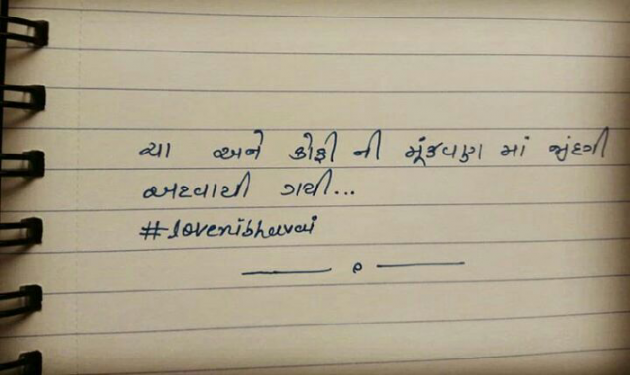 ચા અને કોફી ની મૂંઝવણ માં જીંદગી
અટવાયી ગયી...
#lovenibhavai